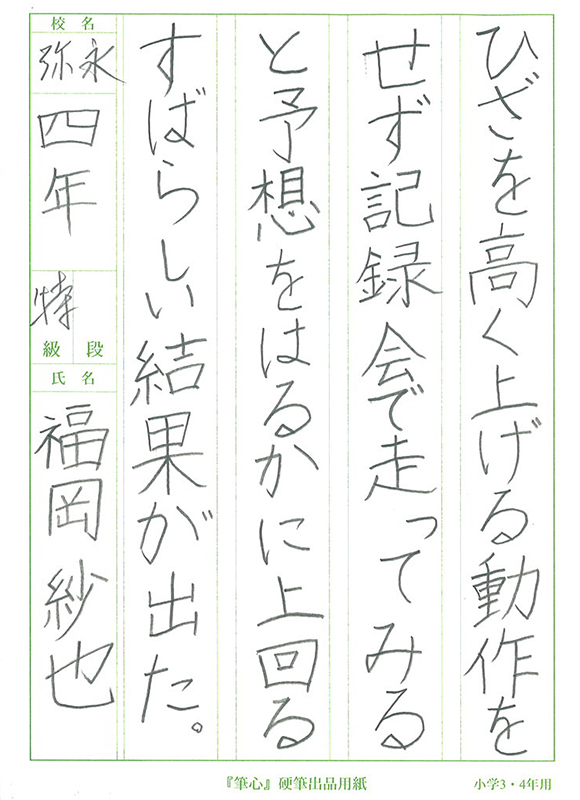 ひざを高く上げる動作を
せず記録会で走ってみる
と予想をはるかに上回る
すばらしい結果が出た。
校名
弥永
四年
特
級段
氏名
福岡紗也
『筆心』硬筆出品用紙
小学3・4年用